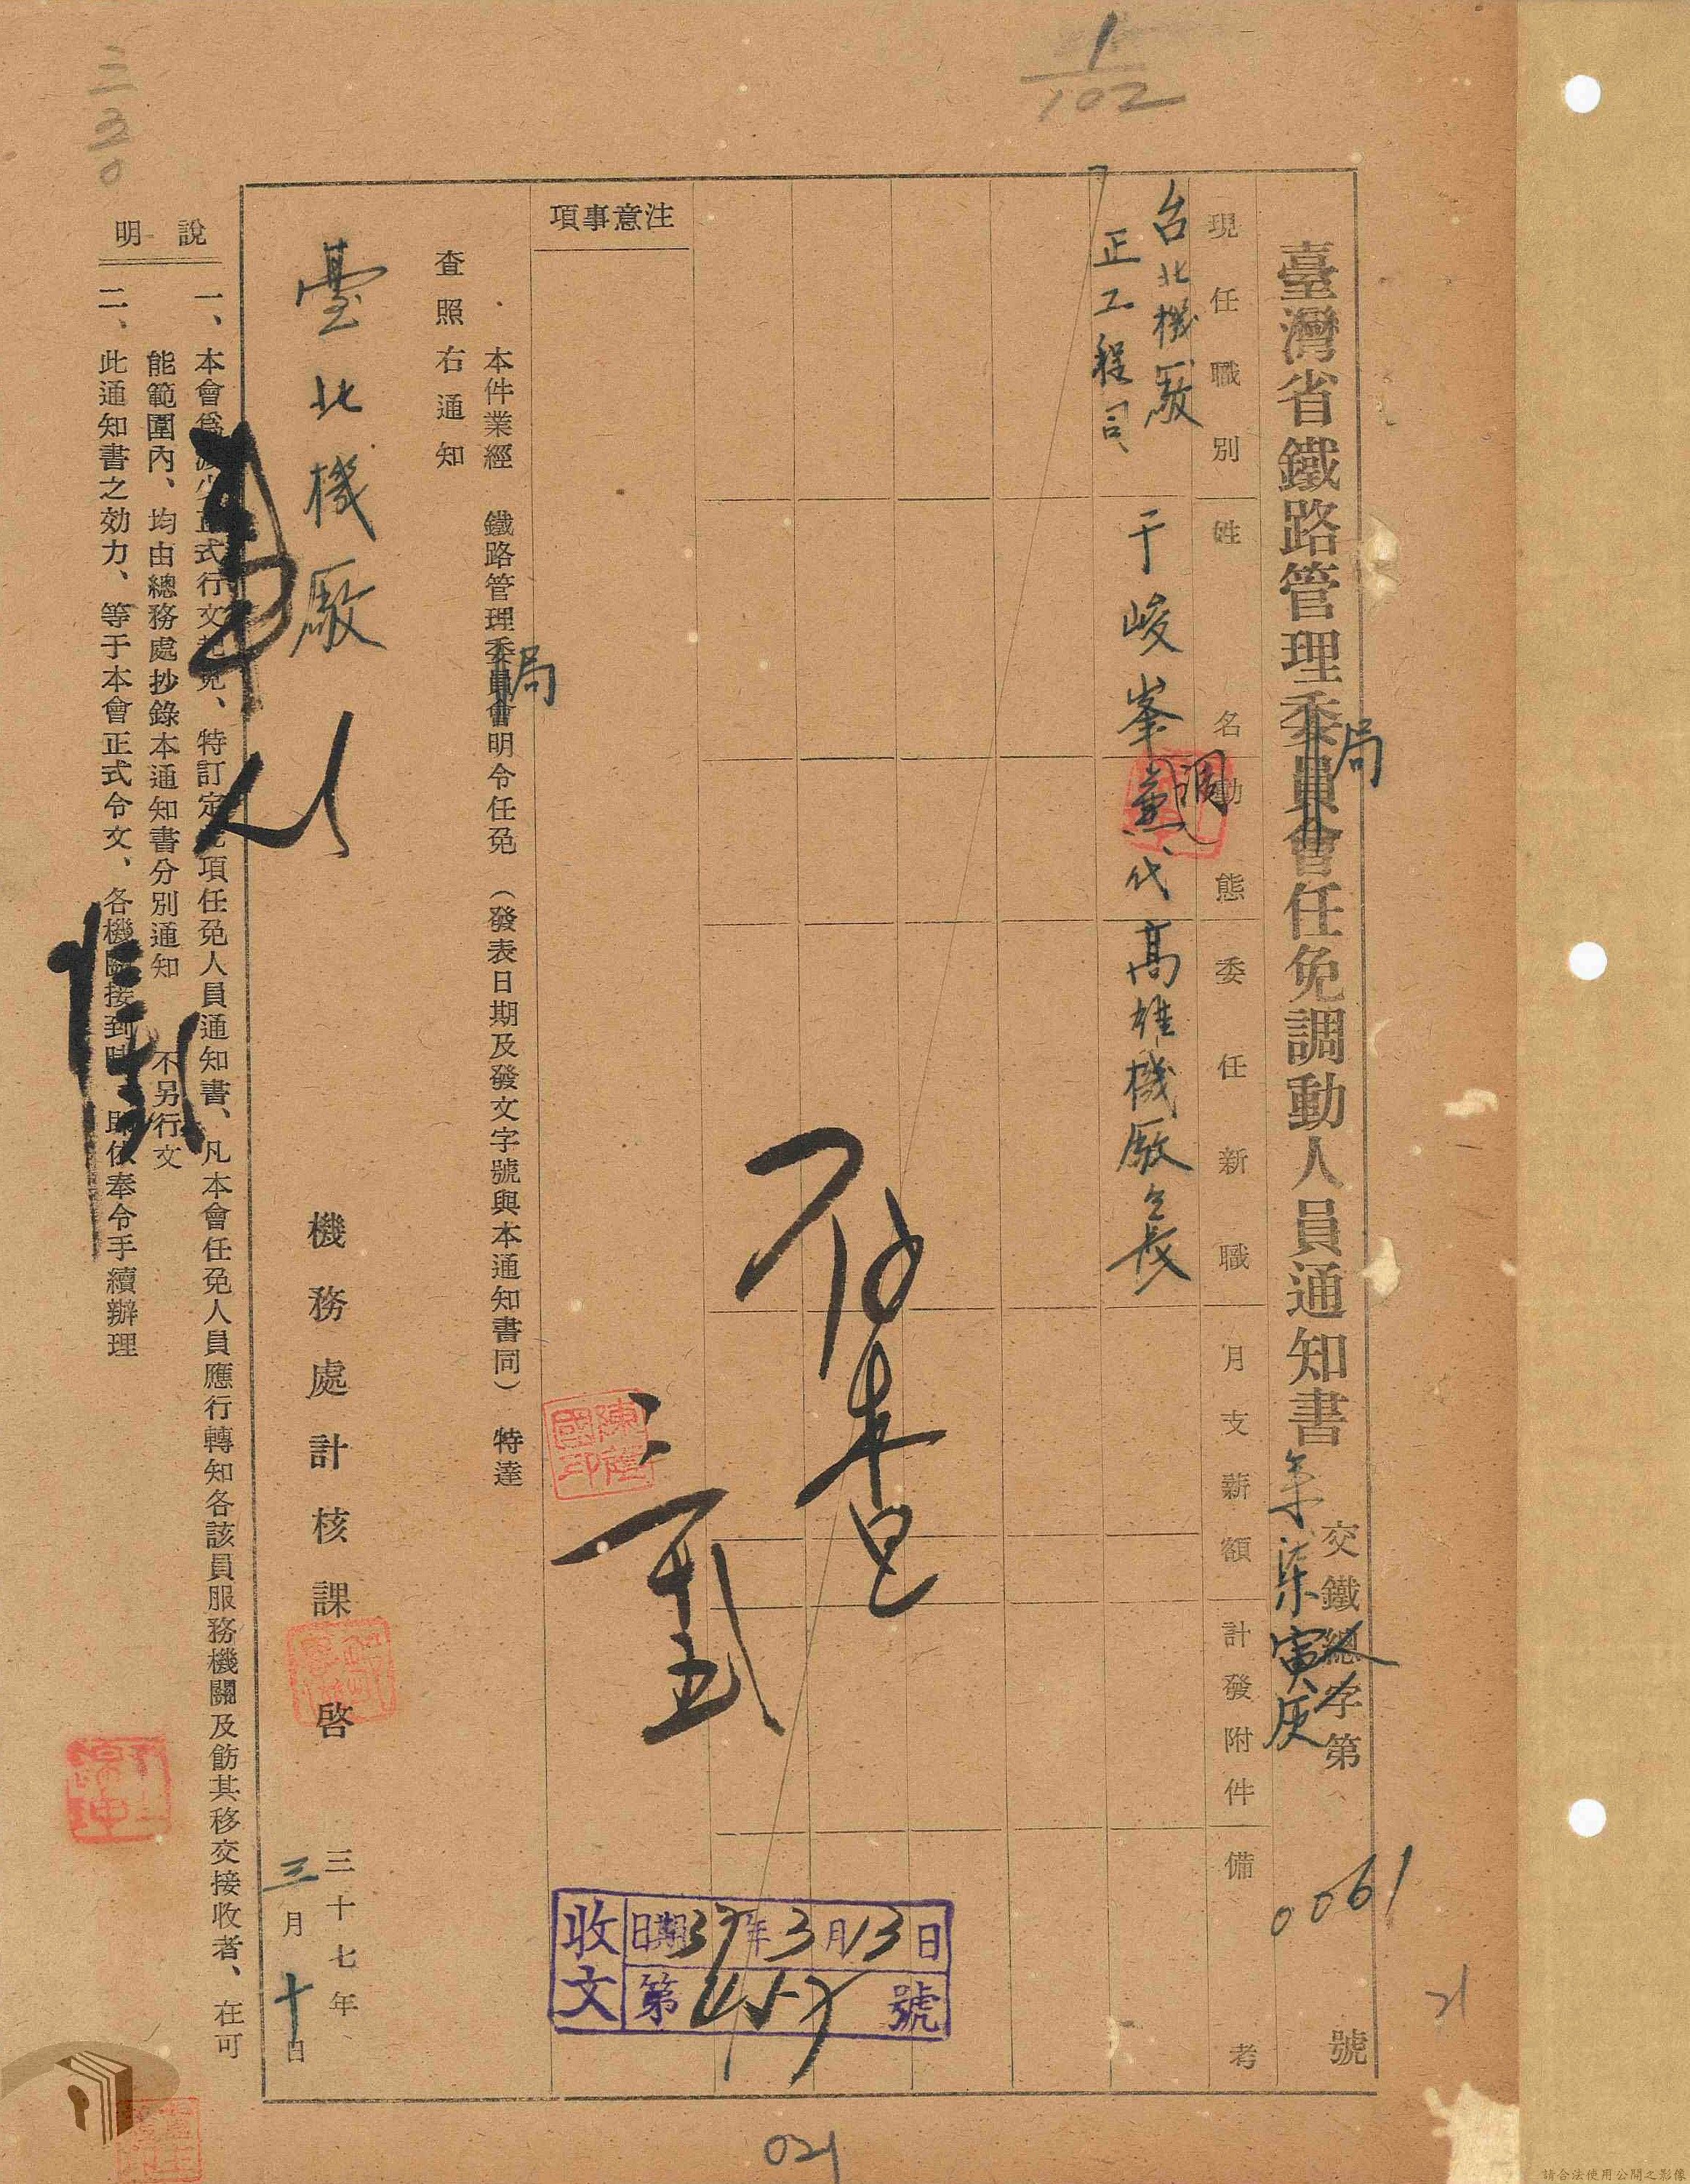 1/102
臺灣省鐵路管理委員會任免調動人員通知書
局
交鐵總字第 號
寅灰
0061
現任職別
姓名
動態
委任新職
月支薪額
計發附件
備考
台北機廠
正工程司
于峻峯
調
兼代
高雄機廠仝長
注意事項
存查
三
本件業經 鐵路管理委員會明令任免 (發表日期及發文字號與本通知書同) 特達
局
查照右通知
臺北機廠
機務處計核課 啓
三十七年
三月十日
收文
日期37年3月13日
第457號
說明
一、本會爲減少正式行文起見、特訂定此項任免人員通知書、凡本會任免人員應行轉知各該員服務機關及飭其移交接收者、在可
能範圍內、均由總務處抄錄本通知書分別通知 不另行文
二、此通知書之効力、等于本會正式令文、各機關接到時 即依奉令手續辦理
21
021
請合法使用公開之影像